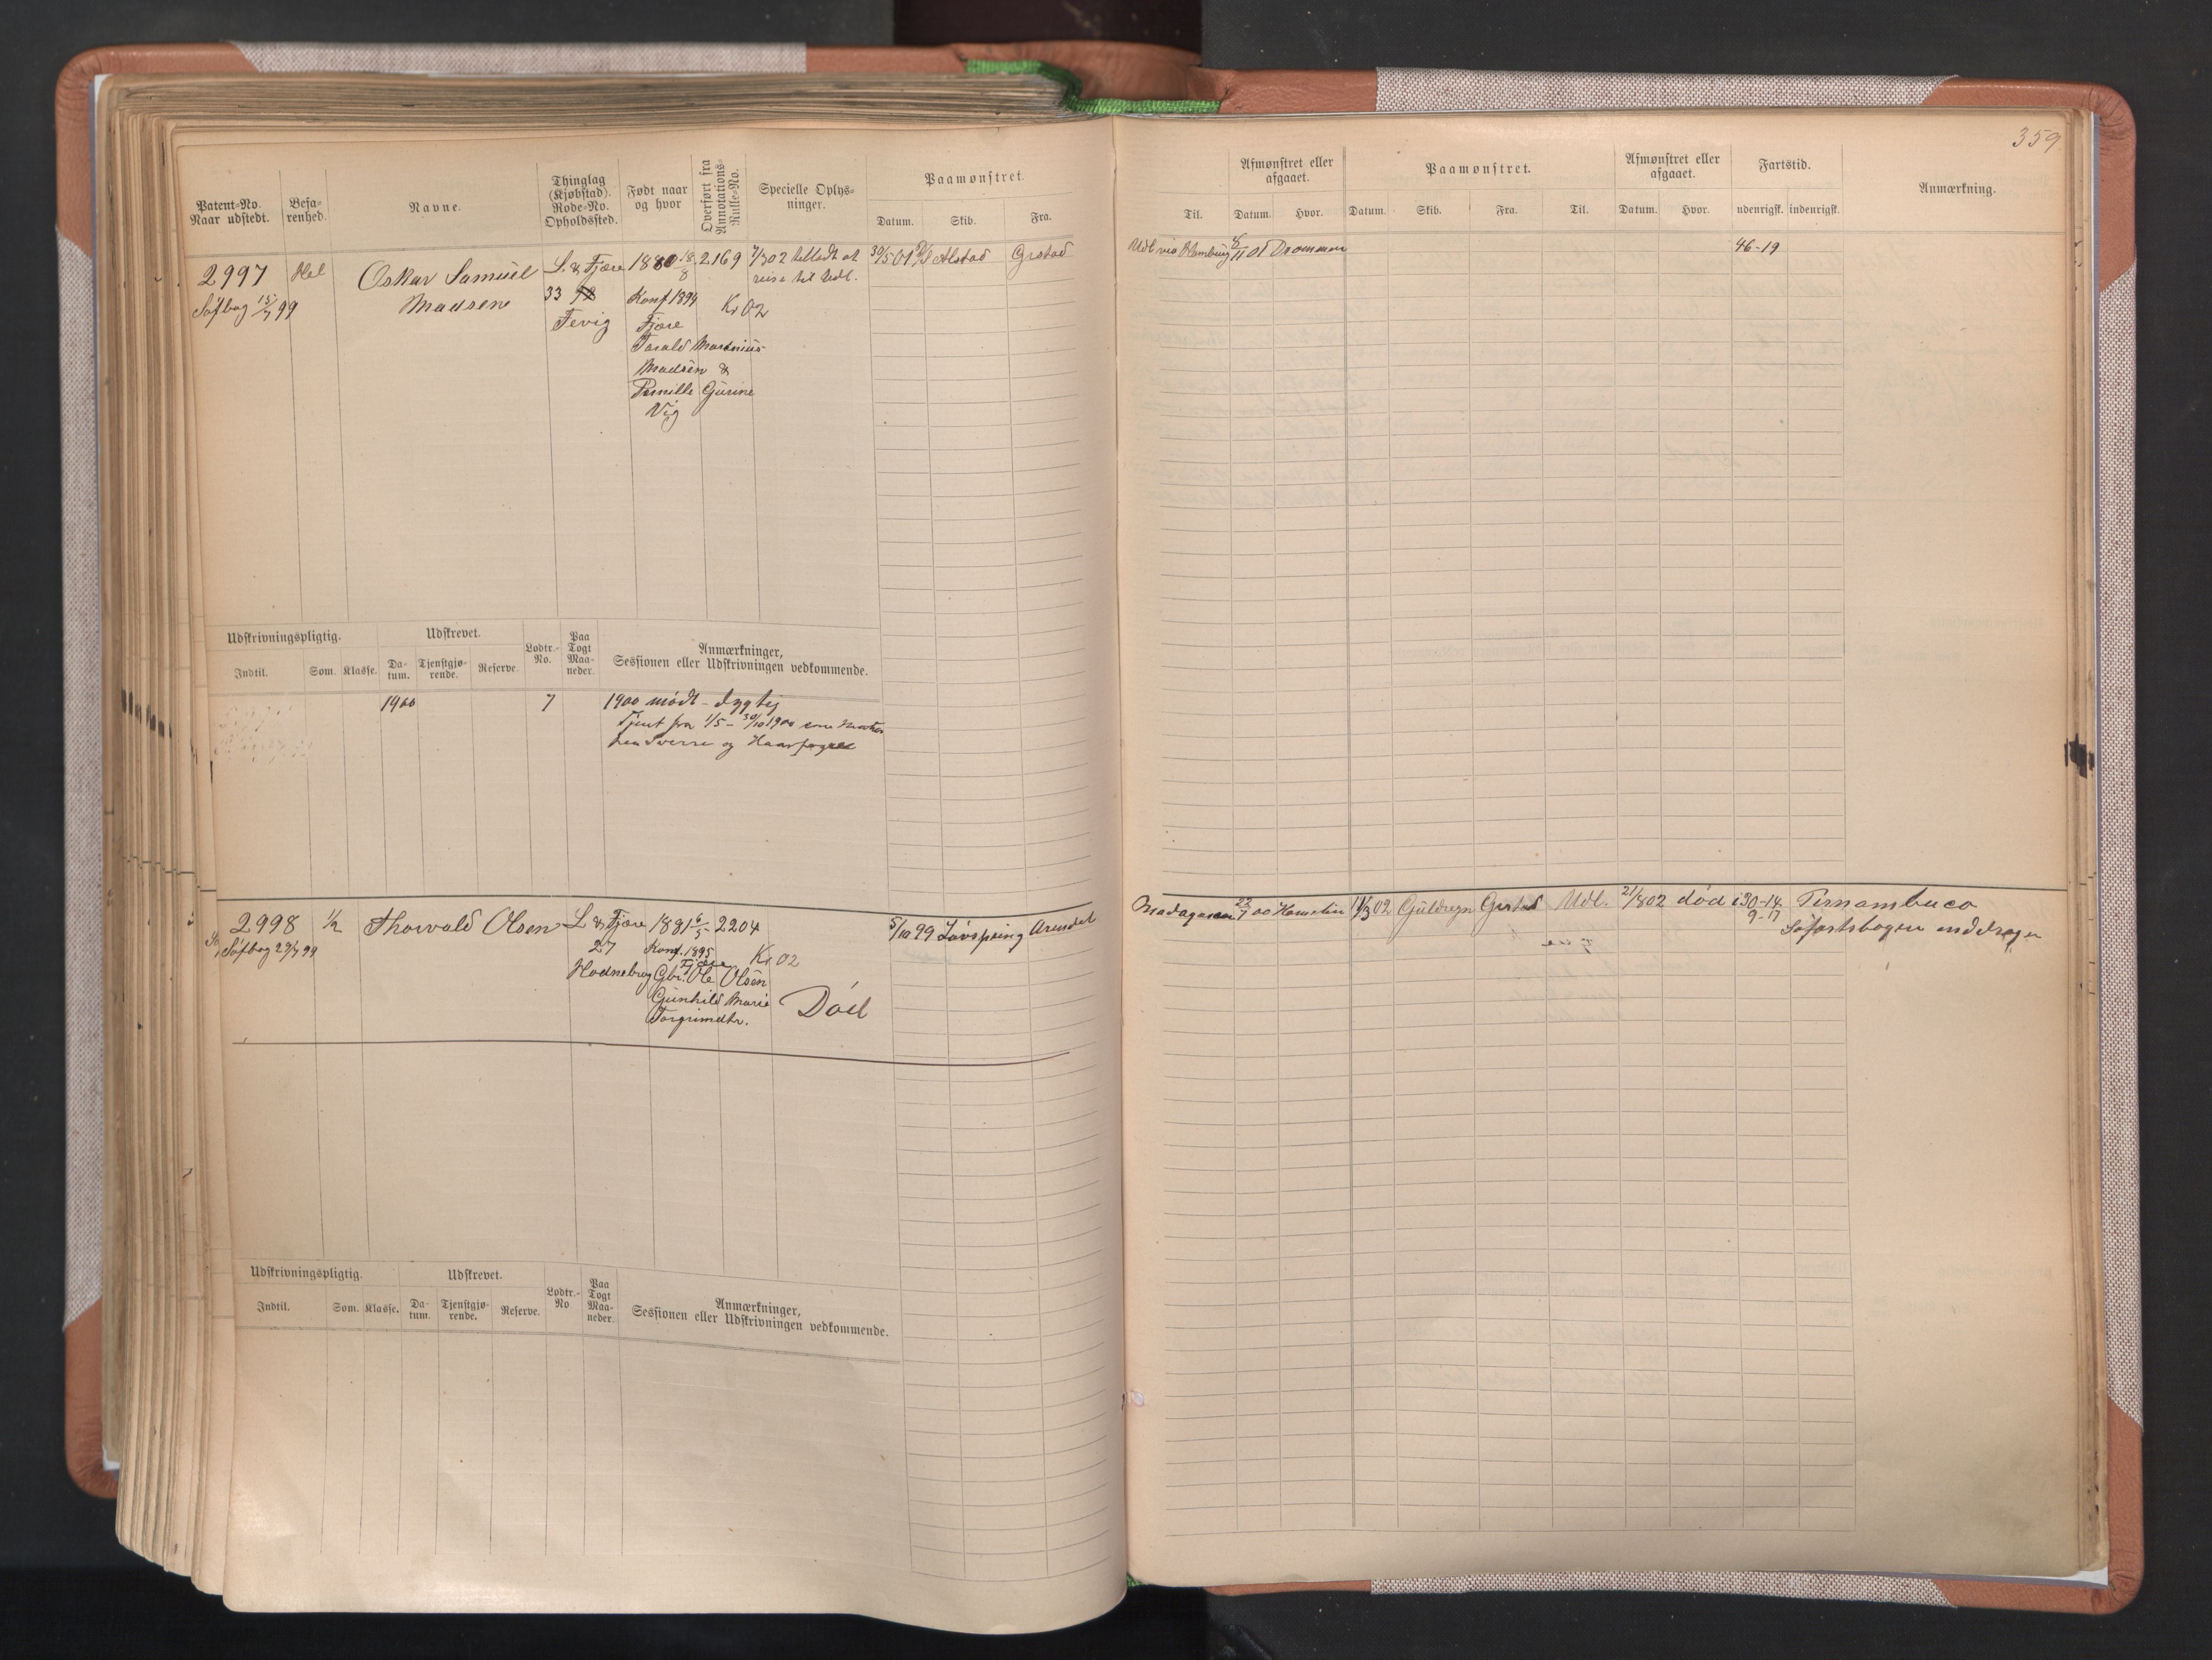 359
Patent-No.
Naar udstedt.
Befa-
renhed.
Navne.
Thinglag
(Kjøbstad).
Rode-No.
Opholdssted.
Født naar
og hvor
Overført fra
Annotations-
Rulle-No.
Specielle Oplys-
ninger.
Paamønstret.
Datum.
Skib.
Fra.
Til.
Afmønstret eller
afgaaet.
Datum.
Hvor.
Paamønstret.
Datum.
Skib.
Fra.
Til.
Afmønstret eller
afgaaet.
Datum.
Hvor.
Fartstid.
udenrigsk.
indenrigsk.
Anmærkning.
2997
Hel
Oskar Samuel
Madsen
Søfbog 15/7 99
L. & Fjære
33
Fevig
1880 18/8
Konf 1894
Fjære
Tarald Martinius
Madsen &
Pernille Gurine
Vig
2169
7/3 02 tilledt at
reise til Udl.
Kr 02
30/5 01
Alstad
Grstad
Udl via Hamburg
11 01 Drammen
46-19
Udskrivningspligtig.
Indtil.
Som.
Klasse.
Udskrevet.
Da-
tum.
Tjenstgjø-
rende.
Reserve.
Lodtr.-
No.
Paa
Togt
Maa-
neder.
Anmærkninger,
Sessionen eller Udskrivningen vedkommende.
1900
7
1900 mødt - dygtig
Tjent fra 1/5 - 30/10 1900 som Matros
paa Sverre og Haarfagre
2998
1/2
Thorvald Olsen
Søfbog 29/7 99
L & Fjære
27
Hodnebrog
1881 6/5
Konf. 1895
Fjære
Gbr. Ole Olsen
Gunhild Marie
Torgrimdtr.
2204
Kr 02
Død
5/10 99 Løvspring Arendal
Madagascar
23/7 00
11/3 02 Guldregn Grstad Udl. 21/8 02 død i
30-14
9-17
Pernambuco
Søfartsbogen inddragen
Udskrivningspligtig.
Indtil.
Som.
Klasse.
Udskrevet.
Da-
tum.
Tjenstgjø-
rende.
Reserve.
Lodtr.-
No
Paa
Togt
Maa-
neder.
Anmærkninger,
Sessionen eller Udskrivningen vedkommende.